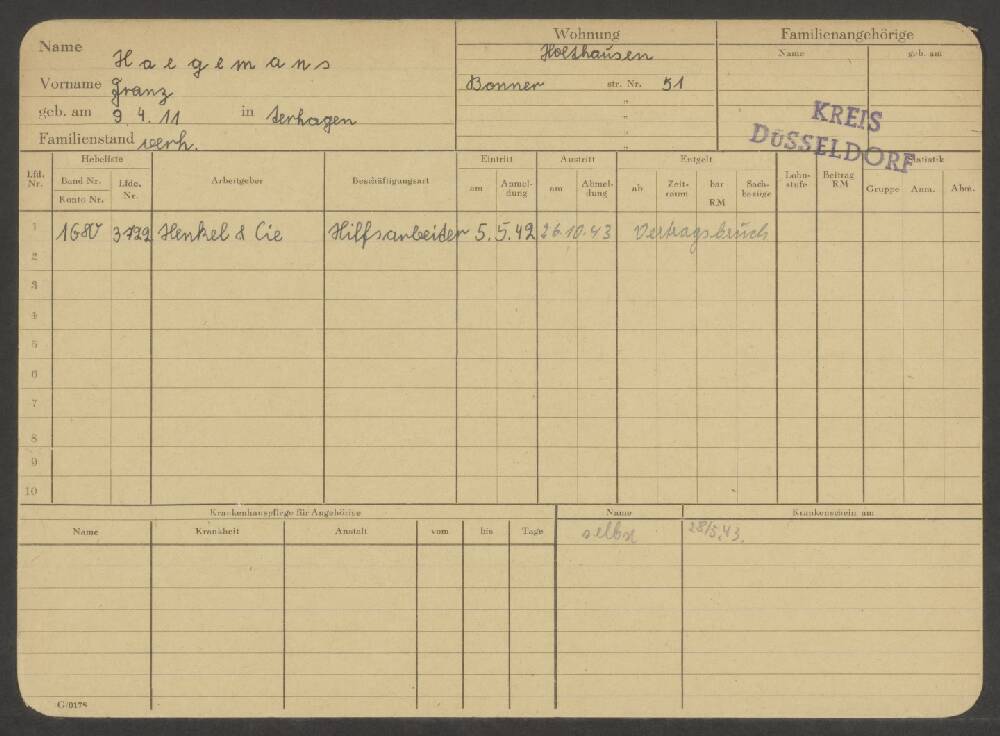 Name Haegemans
Vorname Franz
geb. am 9.4.11 in terhagen
Familienstand verh.
Wohnung
Holthausen
Bonner str. Nr. 51
"
"
"
"
Familienangehörige
Name geb. am
KREIS
DÜSSELDORF
Lfd. Nr. Hebeliste Arbeitgeber Beschäftigungsart Eintritt Austritt Entgelt Lohn-stufe Beitrag RM Statistik
Band Nr. Konto Nr. Lfde. Nr. am Anmel-dung am Abmel-dung ab Zeit-raum bar RM Sach-bezüge Gruppe Anm. Abm.
1 3732 Henkel & Cie Hilfsarbeiter 5.5.42 26.10.43 Vertragsbruch
2
3
4
5
6
7
8
9
10
Krankenhauspflege für Angehörige
Name Krankheit Anstalt vom bis Tage
Name Krankenschein am
selbst 28/5.43.
G/0178